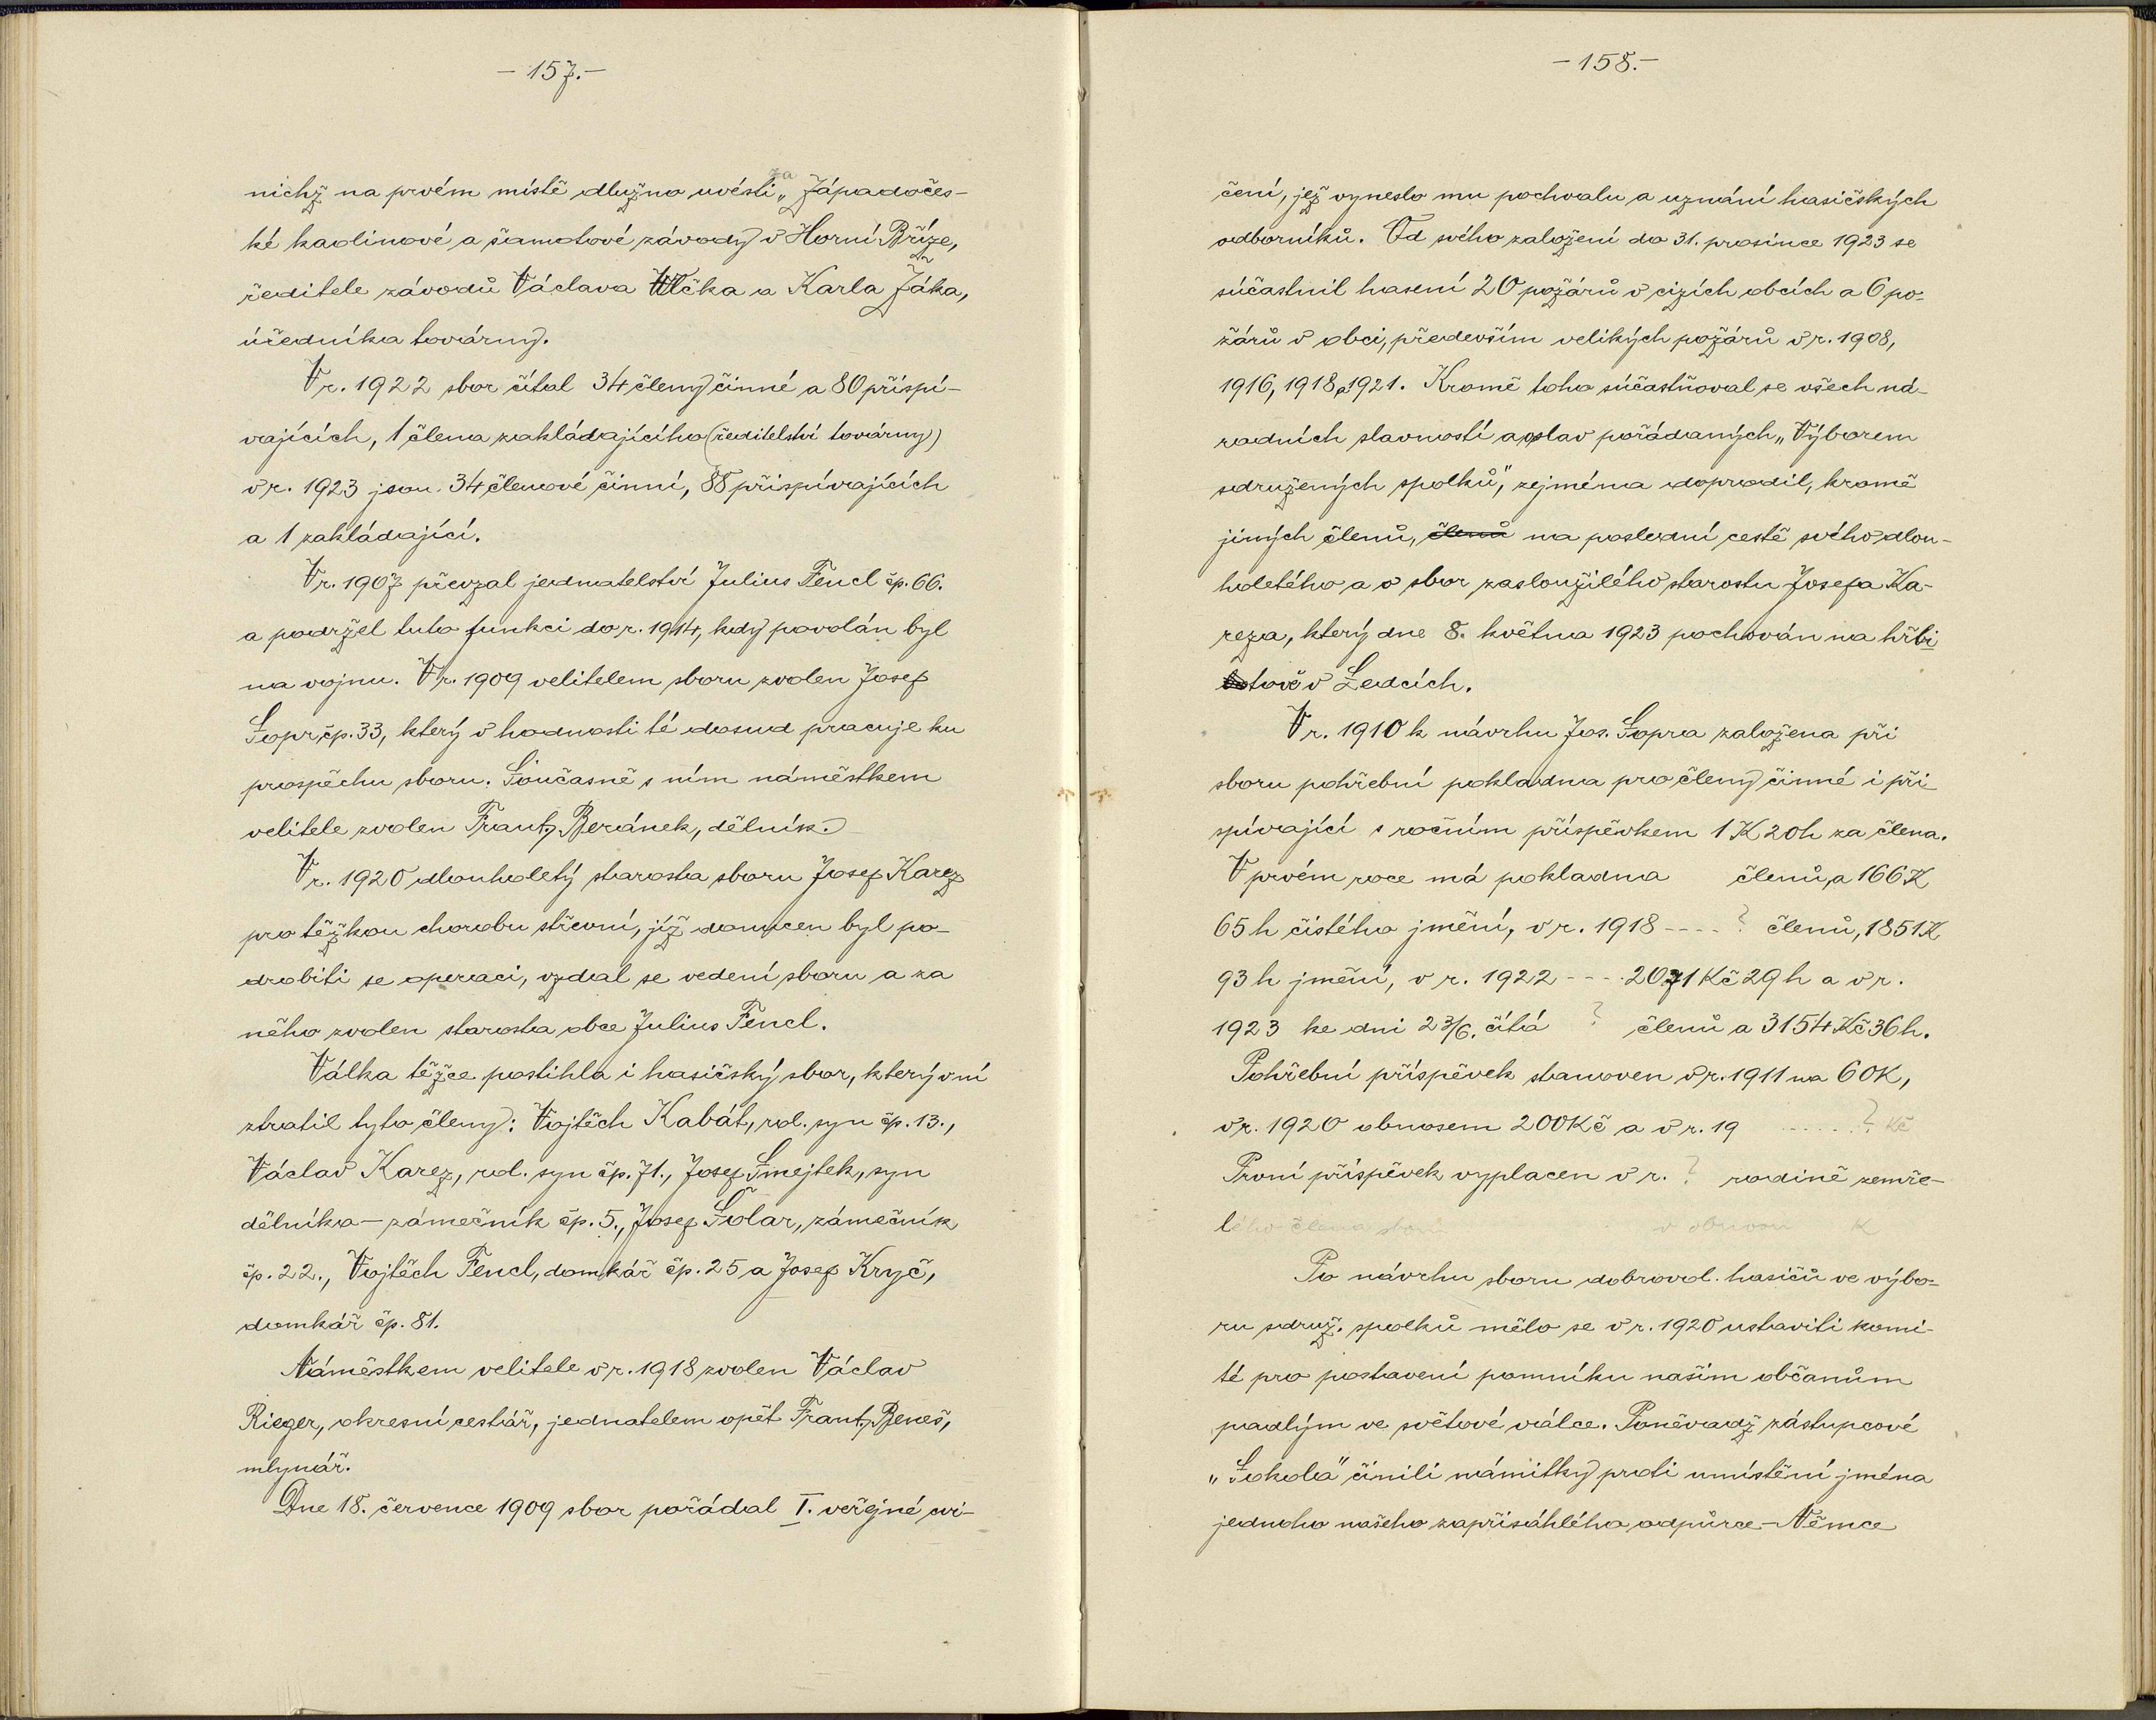 - 157. -
nichž na prvém místě dlužno uvésti za „Západočes-
ké kaolinové a šamotové závody v Horní Bříze,
ředitele závodů Václava Vlčka a Karla Žáka,
úředníka továrny.
V r. 1922 sbor čítal 34 členy činné a 80 přispí-
vajících, 1 člena zakládajícího (ředitelství továrny)
v r. 1923 jsou 34 členové činní, 88 přispívajících
a 1 zakládající.
V r. 1907 převzal jednatelství Julius Fencl čp. 66.
a podržel tuto funkci do r. 1914, kdy povolán byl
na vojnu. V r. 1909 velitelem sboru zvolen Josef
Šopr, čp. 33, který v hodnosti té dosud pracuje ku
prospěchu sboru. Současně s ním náměstkem
velitele zvolen Frant. Beránek, dělník.
V r. 1920 dlouholetý starosta sboru Josef Karez
pro těžkou chorobu střevní, jíž donucen byl po-
drobiti se operaci, vzdal se vedení sboru a za
něho zvolen starosta obce Julius Fencl.
Válka těžce postihla i hasičský sbor, který v ní
ztratil tyto členy: Vojtěch Kabát, rol. syn čp. 13.,
Václav Karez, rol. syn čp. 71., Josef Smejtek, syn
dělníka - zámečník čp. 5., Josef Šolar, zámečník
čp. 22., Vojtěch Fencl, domkář čp. 25 a Josef Kryč,
domkář čp. 81.
Náměstkem velitele v r. 1918 zvolen Václav
Rieger, okresní cestář, jednatelem opět Frant. Beneš,
mlynář.
Dne 18. července 1909 sbor pořádal I. veřejné cvi-
- 158. -
čení, jež vyneslo mu pochvalu a uznání hasičských
odborníků. Od svého založení do 31. prosince 1923 se
súčastnil hasení 20 požárů v cizích obcích a 6 po-
žárů v obci, především velikých požárů v r. 1908,
1916, 1918 a 1921. Kromě toho súčastňoval se všech ná-
rodních slavností a oslav pořádaných „Výborem
sdružených spolků", zejména doprovodil, kromě
jiných členů, členů na poslední cestě svého dlou-
holetého a o sbor zasloužilého starostu Josefa Ka-
reza, který dne 8. května 1923 pochován na hřbi
tově v Ledcích.
V r. 1910 k návrhu Jos. Šopra založena při
sboru pohřební pokladna pro členy činné i při
spívající s ročním příspěvkem 1 K 20 h za člena.
V prvém roce má pokladna členů, a 166 K
65 h čistého jmění, v r. 1918 ---- ? členů, 1851 K
93 h jmění, v r. 1922 ---- 2071 Kč 29 h a v r.
1923 ke dni 23/6. čítá ? členů a 3154 Kč 36 h.
Pohřební příspěvek stanoven v r. 1911 na 60 K,
v r. 1920 obnosem 200 Kč a v r. 19 ...... ? Kč
První příspěvek vyplacen v r. ? rodině zemře-
lého člena sboru v obnosu K
Po návrhu sboru dobrovol. hasičů ve výbo-
ru sdruž. spolků mělo se v r. 1920 ustaviti komi-
té pro postavení pomníku našim občanům
padlým ve světové válce. Poněvadž zástupcové
„Sokola" činili námitky proti umístění jména
jednoho našeho zapřisáhlého odpůrce - Němce